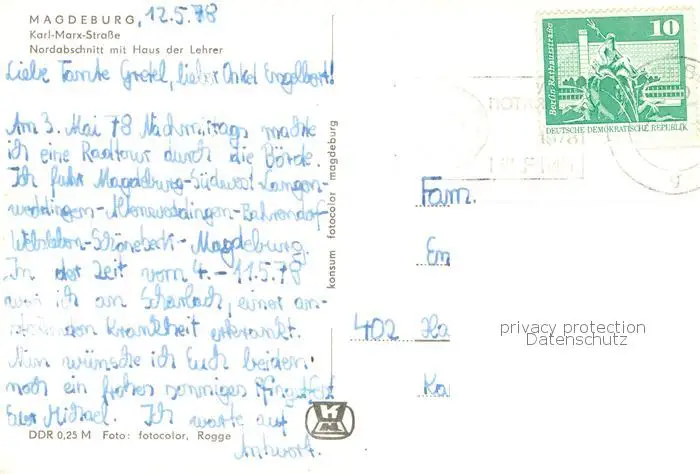 MAGDEBURG, 12.5.78
Karl-Marx-Straße
Nordabschnitt mit Haus der Lehrer
Liebe Tante Gretel, lieber Onkel Engelbert!
Am 3. Mai 78 Nachmittags machte
ich eine Radtour durch die Börde.
Ich fuhr Magdeburg-Südwest Langen-
weddingen-Altenweddingen-Bahrendorf-
Welsleben-Schönebeck-Magdeburg.
In der Zeit vom 4.-11.5.78
war ich an Scharlach, einer an-
steckenden Krankheit erkrankt.
Nun wünsche ich Euch beiden
noch ein frohes sonniges Pfingstfest
Euer Michael. Ich warte auf
Antwort.
DDR 0,25 M Foto: fotocolor, Rogge
konsum fotocolor magdeburg
10
Berlin-Rathausstraße
DEUTSCHE DEMOKRATISCHE REPUBLIK
Fam.
En
402 Ha
Ka
privacy protection
Datenschutz